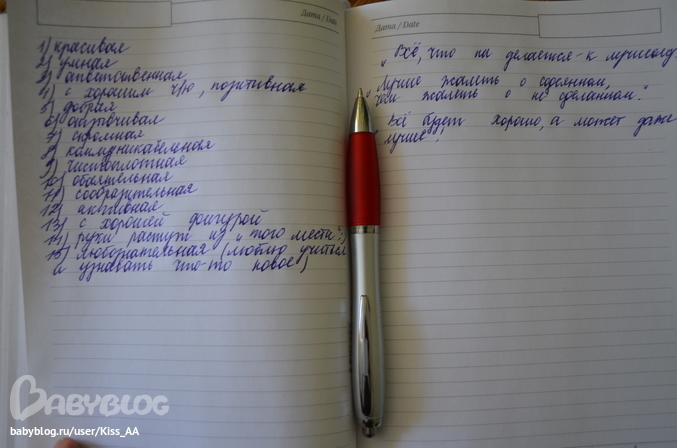 Дата / Date
1) красивая
2) умная
3) ответственная
4) с хорошим ч/ю, позитивная
5) добрая
6) отзывчивая
7) скромная
8) коммуникабельная
9) чистоплотная
10) обаятельная
11) сообразительная
12) активная
13) с хорошей фигурой
14) руки растут из "того места"
15) любознательная (люблю учиться
а узнавать что-то новое)
Дата / Date
"Всё, что ни делается - к лучшему.
"Лучше жалеть о содеянном,
чем жалеть о не сделанном."
"Всё будет хорошо, а может даже
лучше!"
BABYBLOG
babyblog.ru/user/Kiss_AA